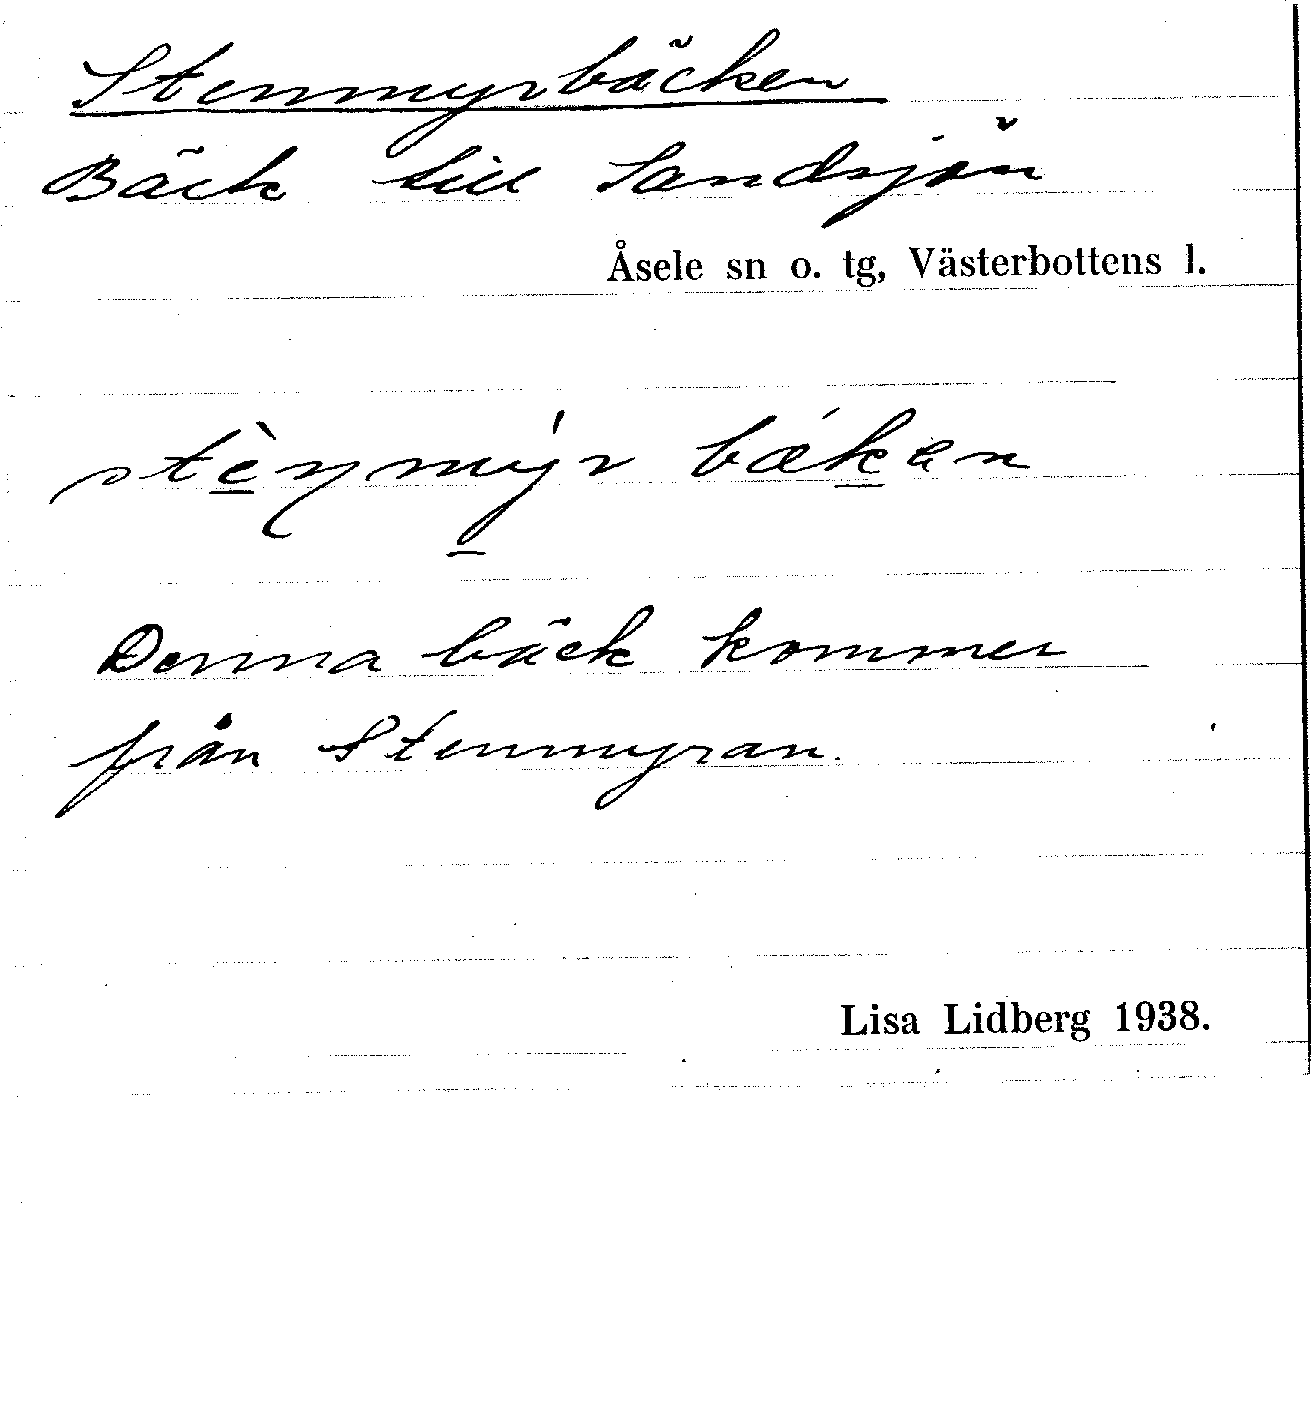 Stenmyrbäcken
Bäck till Sandsjön
Åsele sn o. tg, Västerbottens l.
stèŋmýr bækan
Denna bäck kommer
från Stenmyran.
Lisa Lidberg 1938.